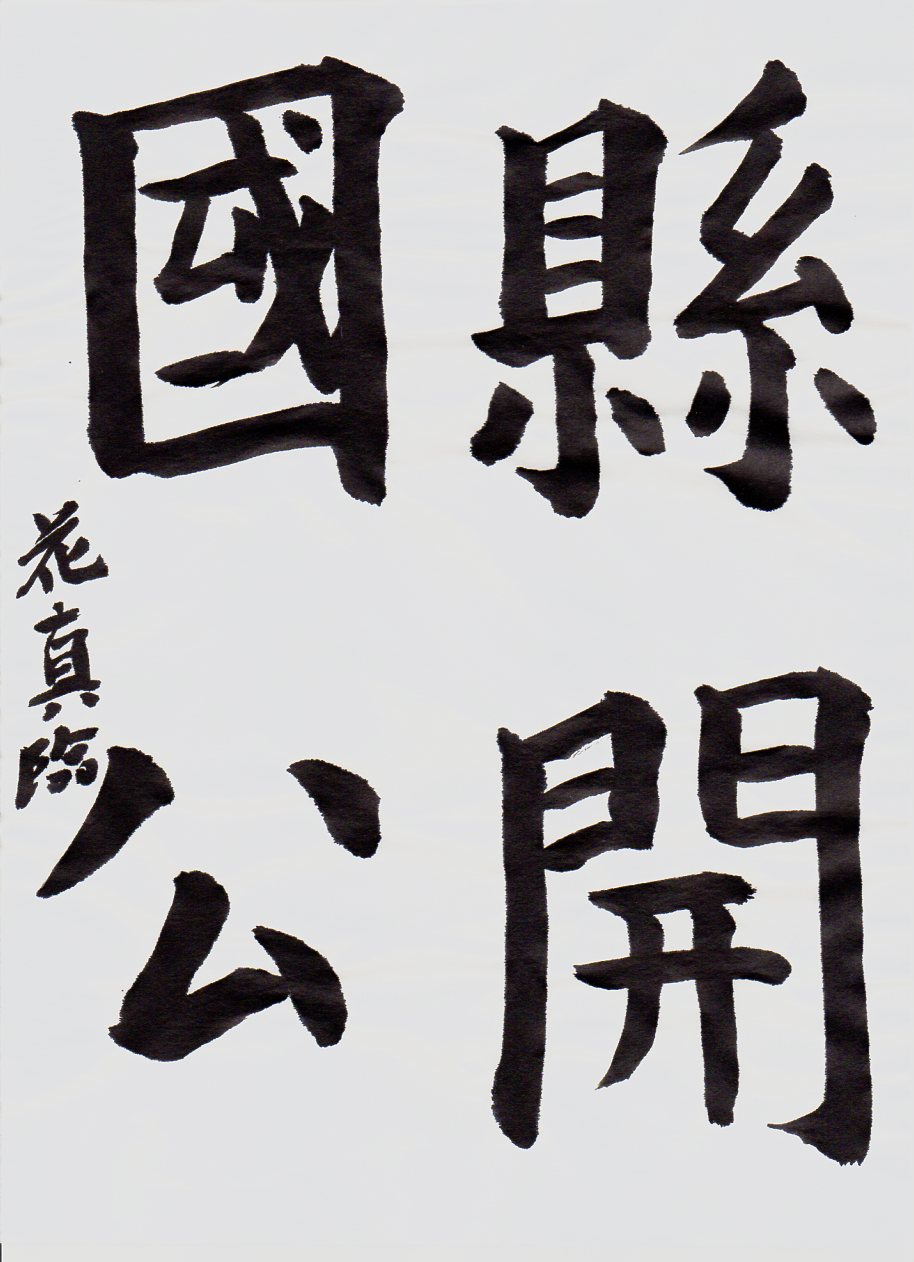 縣開
國公
花真臨